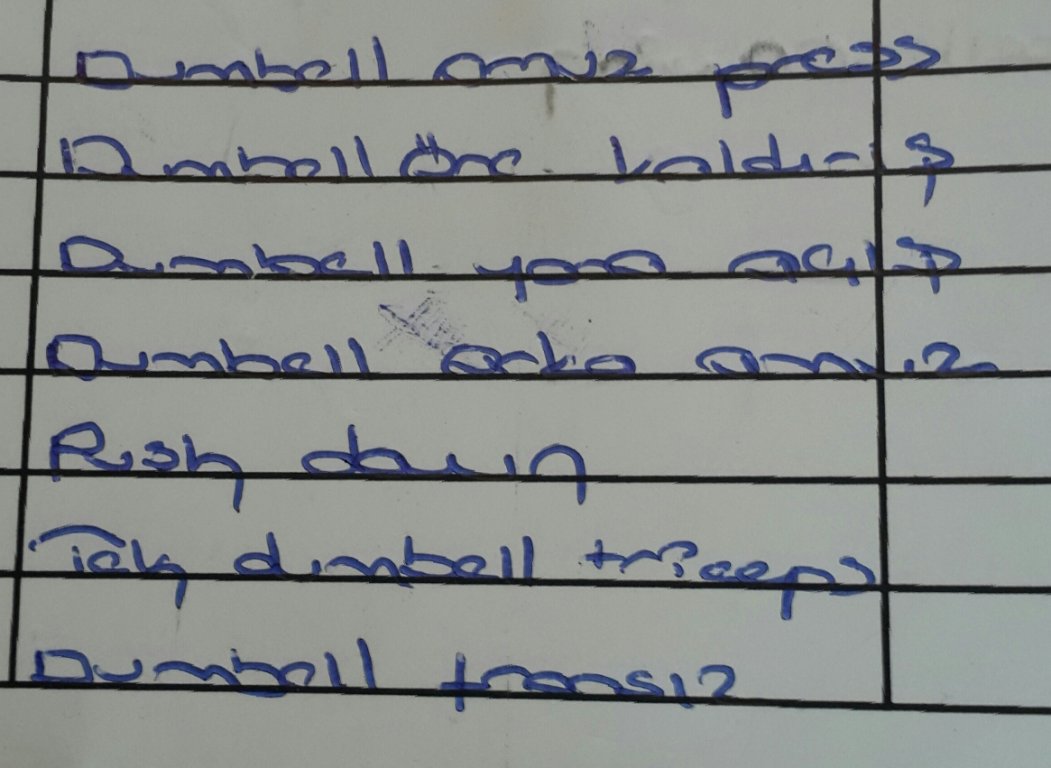 Dumbell omuz press
Dumbell öne kaldırış
Dumbell yana açış
Dumbell arka omuz
Push down
Tek dumbell triceps
Dumbell